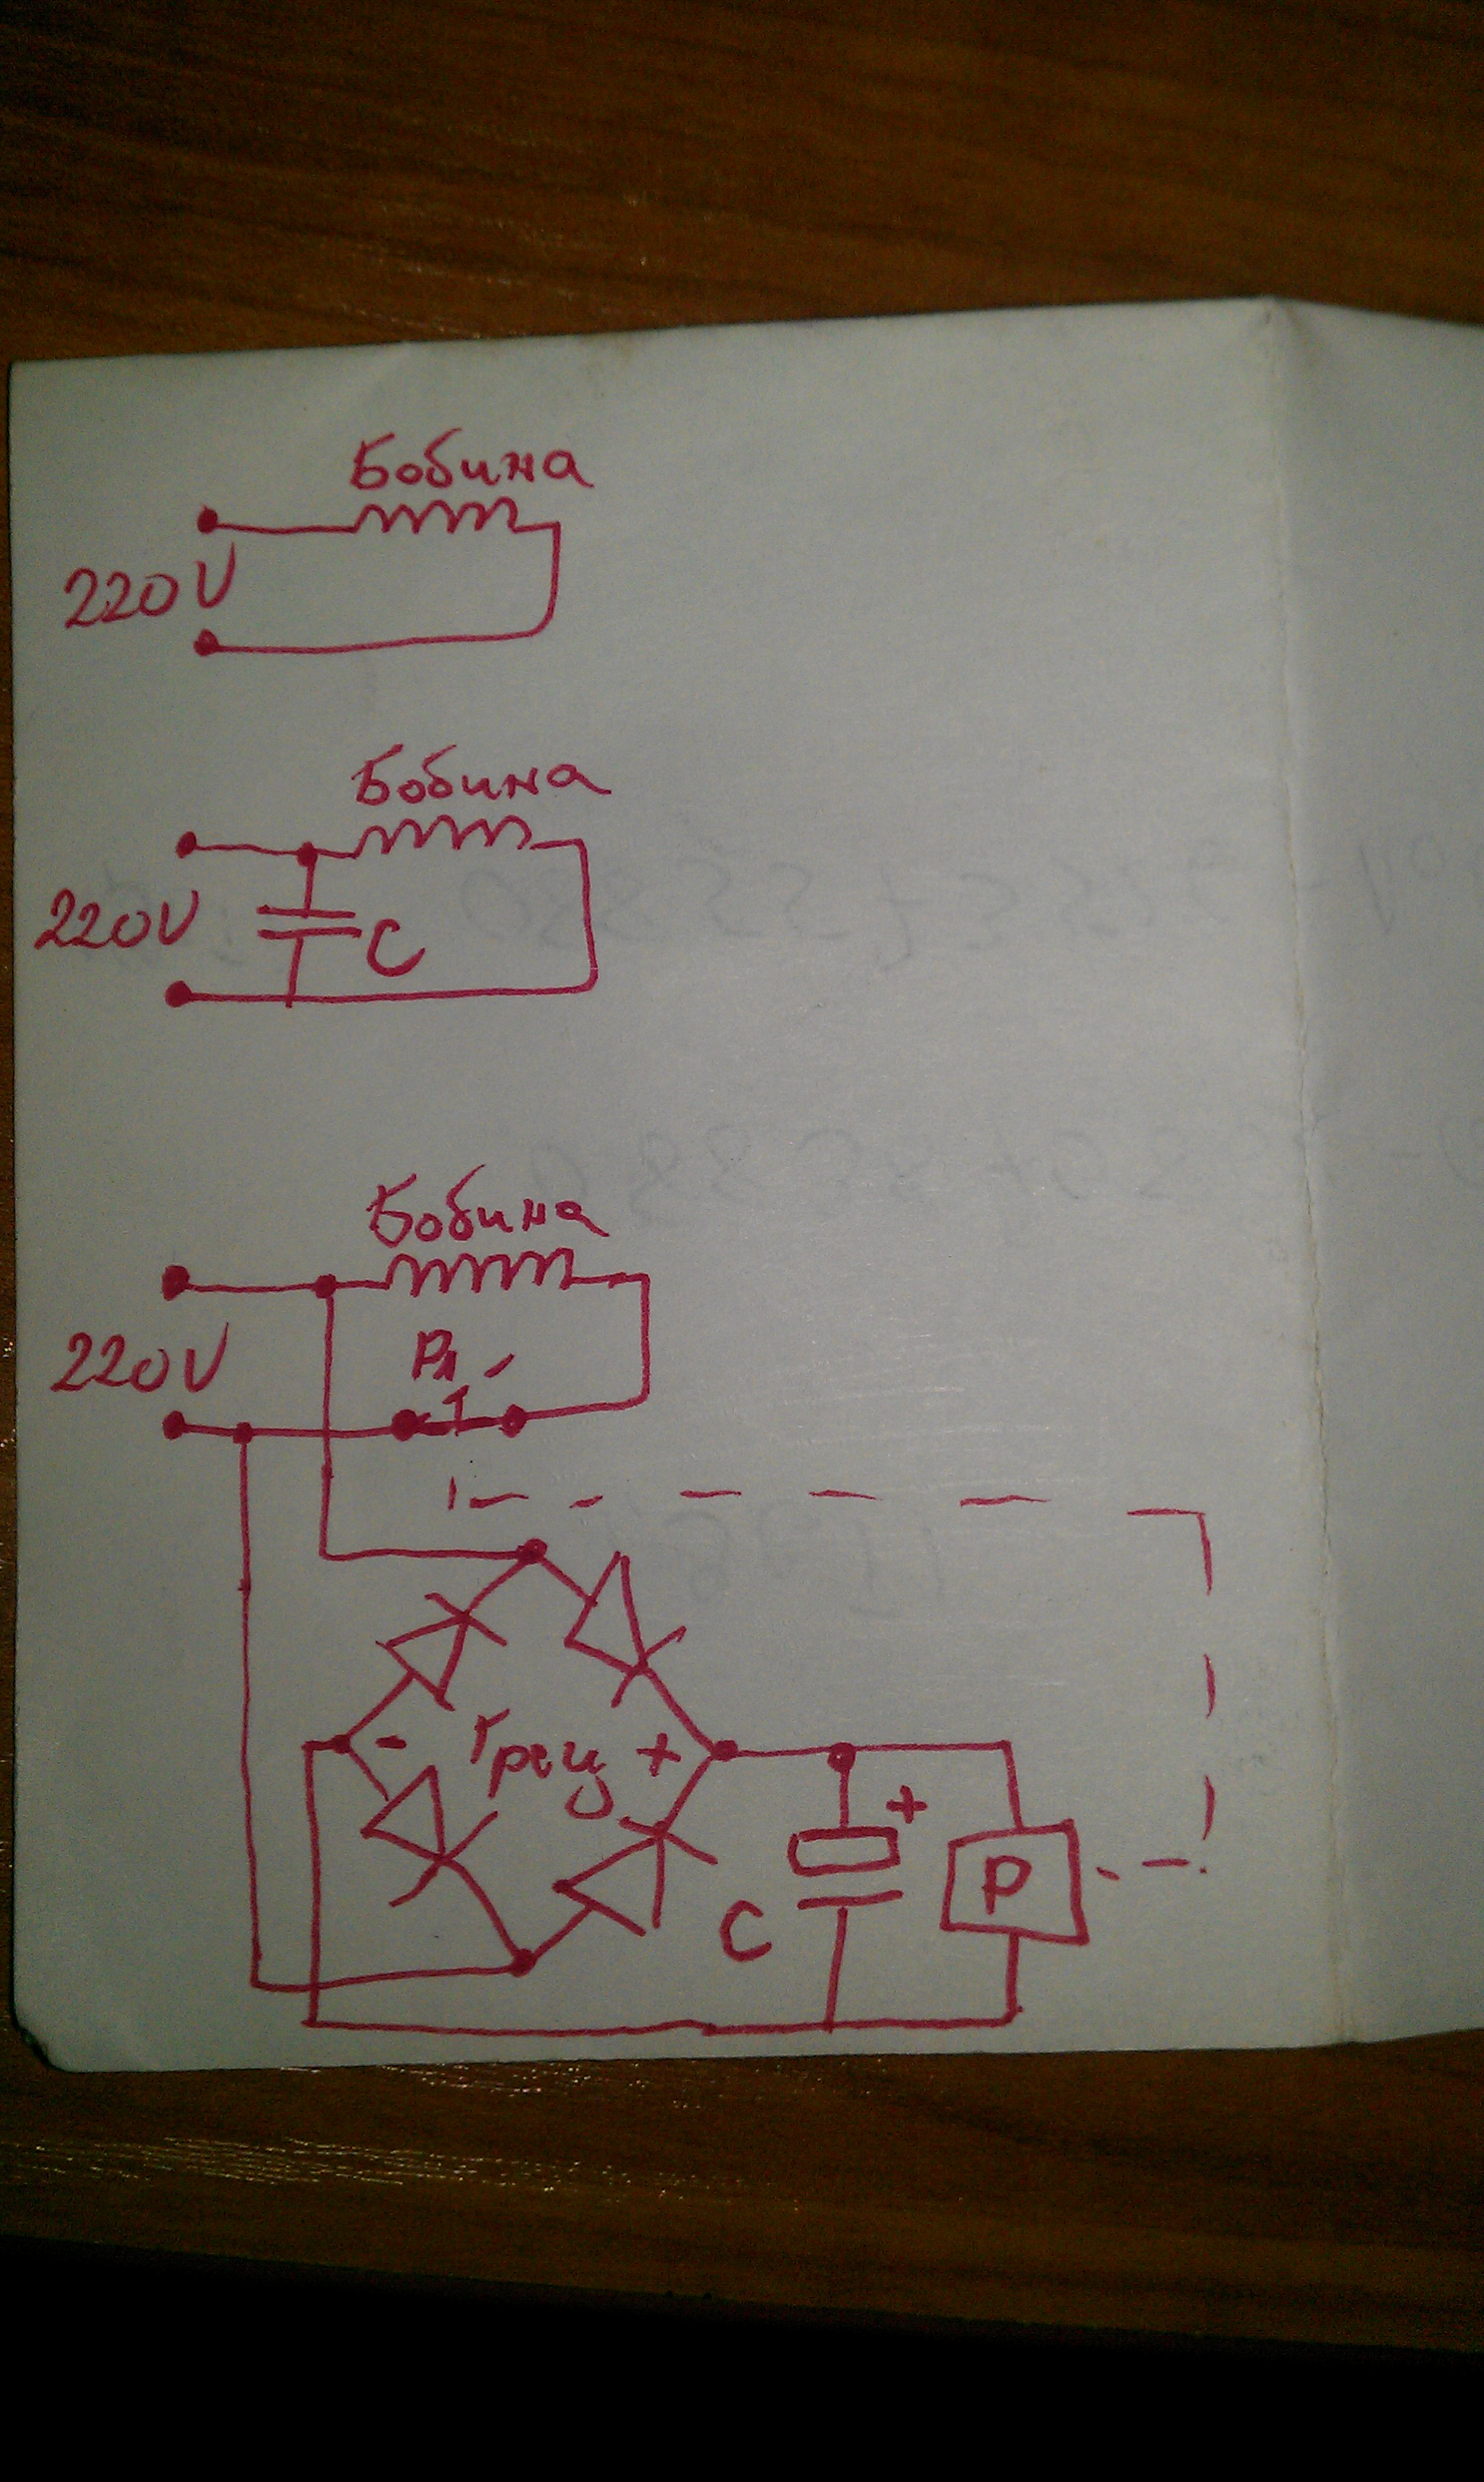 Бобина
220V
Бобина
220V
C
Бобина
220V
P1
- Грец +
+
C
P